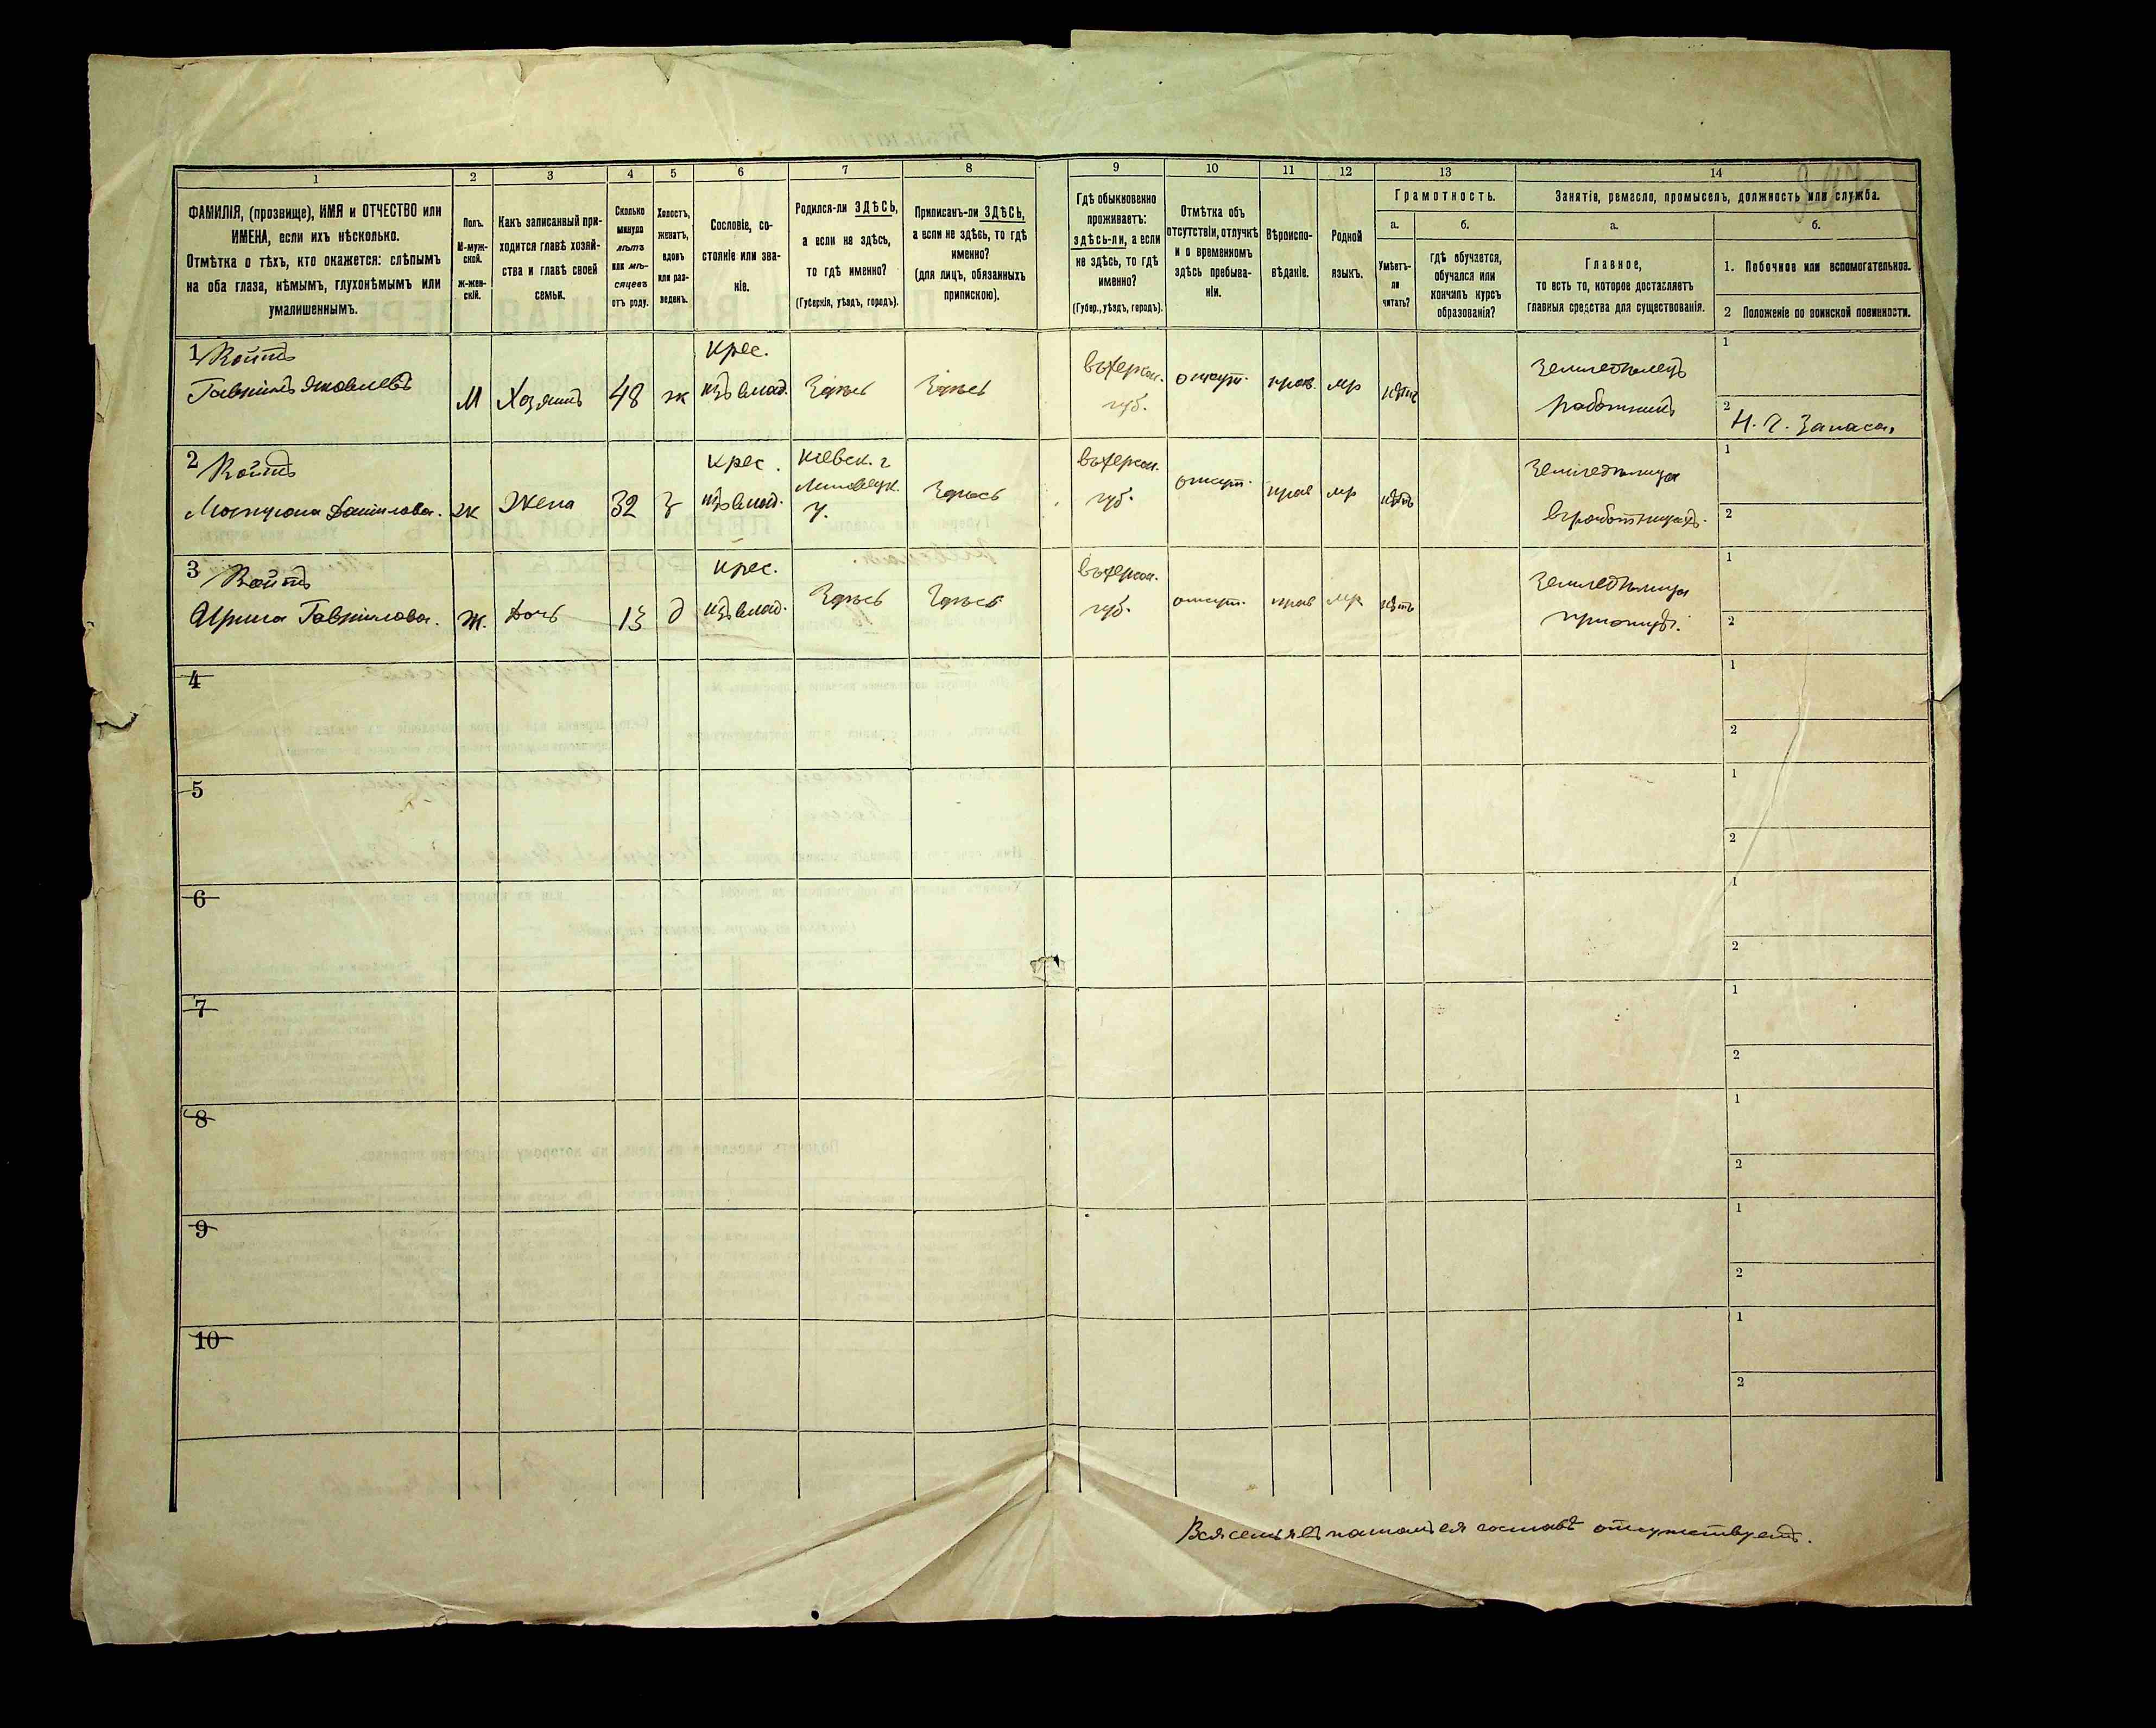 1 2 3 4 5 6 7 8 9 10 11 12 13 14
ФАМИЛІЯ, (прозвище), ИМЯ и ОТЧЕСТВО или
ИМЕНА, если ихъ нѣсколько.
Отмѣтка о тѣхъ, кто окажется: слѣпымъ
на оба глаза, нѣмымъ, глухонѣмымъ или
умалишеннымъ.
Полъ.
М-муж-
ской.
Ж-жен-
скій.
Какъ записанный при-
ходится главѣ хозяй-
ства и главѣ своей
семьи.
Сколько
минуло
лѣтъ
или мѣ-
сяцевъ
отъ роду.
Холостъ,
женатъ,
вдовъ
или раз-
веденъ.
Сословіе, со-
стояніе или зва-
ніе.
Родился-ли ЗДѢСЬ,
а если не здѣсь,
то гдѣ именно?
(Губернія, уѣздъ, городъ).
Приписанъ-ли ЗДѢСЬ,
а если не здѣсь, то гдѣ
именно?
(для лицъ, обязанныхъ
припискою).
Гдѣ обыкновенно
проживаетъ:
здѣсь-ли, а если
не здѣсь, то гдѣ
именно?
(Губер., уѣздъ, городъ).
Отмѣтка объ
отсутствіи, отлучкѣ
и о временномъ
здѣсь пребыва-
ніи.
Вѣроиспо-
вѣданіе.
Родной
языкъ.
Грамотность.
а.
Умѣетъ-
ли
читать?
б.
гдѣ обучается,
обучался или
кончилъ курсъ
образованія?
Занятія, ремесло, промыселъ, должность или служба.
а.
Главное,
то есть то, которое доставляетъ
главныя средства для существованія.
б.
1. Побочное или вспомогательное.
2 Положеніе по воинской повинности.
1 Войтъ
Гавріилъ Яковлевъ
М
Хозяинъ
48
ж
крес.
изъ влад.
Здѣсь
Здѣсь
въ Херсон.
губ.
отсут.
прав.
мр
нѣтъ
Земледѣлецъ
работникъ
1
2
Н. Ч. Запаса.
2 Войтъ
Данилова.
ж
Жена
32
з
крес.
изъ влад.
Кіевск. г
Липовецк.
у.
Здѣсь
въ Херсон.
губ.
отсут.
прав
мр
нѣтъ
Земледѣлица
въ работницахъ.
1
2
3 Войтъ
Ирина Гавріилова.
ж.
Дочь
13
д
крес.
изъ влад.
Здѣсь
Здѣсь
въ Херсон.
губ.
отсут.
прав
мр
нѣтъ
Земледѣлица
при отцѣ.
1
2
4
1
2
5
1
2
6
1
2
7
1
2
8
1
2
9
1
2
10
1
2
Вся семья въ полномъ ея составѣ отсутствуетъ.